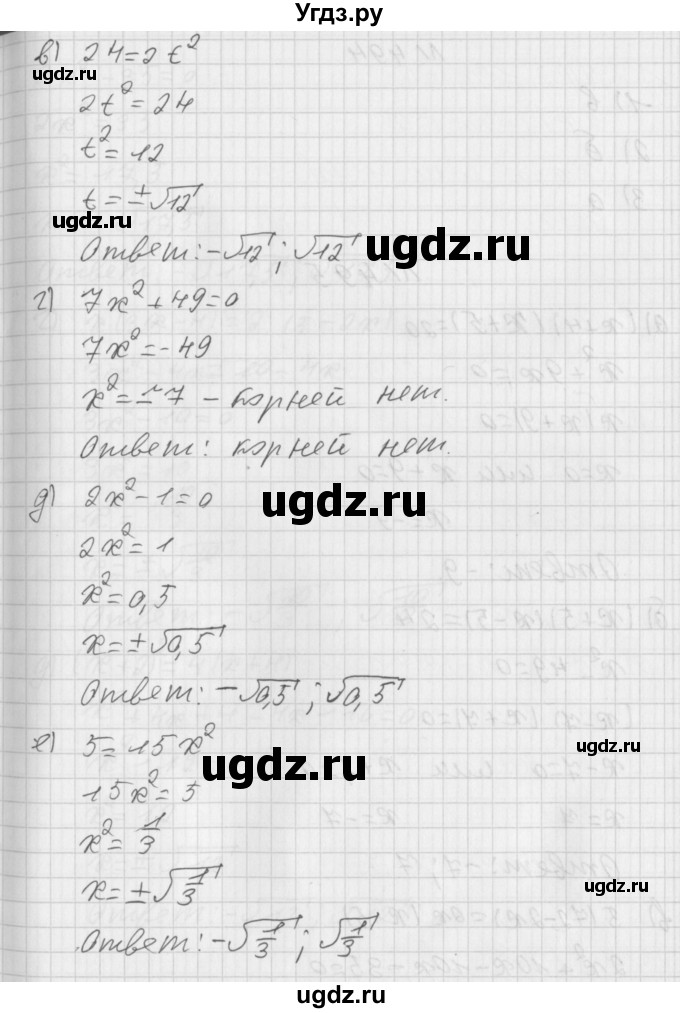 Угдз.ру
в) 24=2t²
2t²=24
t²=12
t=±√12
Ответ: -√12; √12
г) 7x²+49=0
7x²=-49
x²=-7 - корней нет.
Ответ: корней нет.
д) 2x²-1=0
2x²=1
x²=0,5
x=±√0,5
Ответ: -√0,5; √0,5
е) 5=15x²
15x²=5
x²=1/3
x=±√1/3
Ответ: -√1/3; √1/3
ugdz.ru
ugdz.ru
ugdz.ru
ugdz.ru
ugdz.ru
ugdz.ru
ugdz.ru
ugdz.ru
ugdz.ru